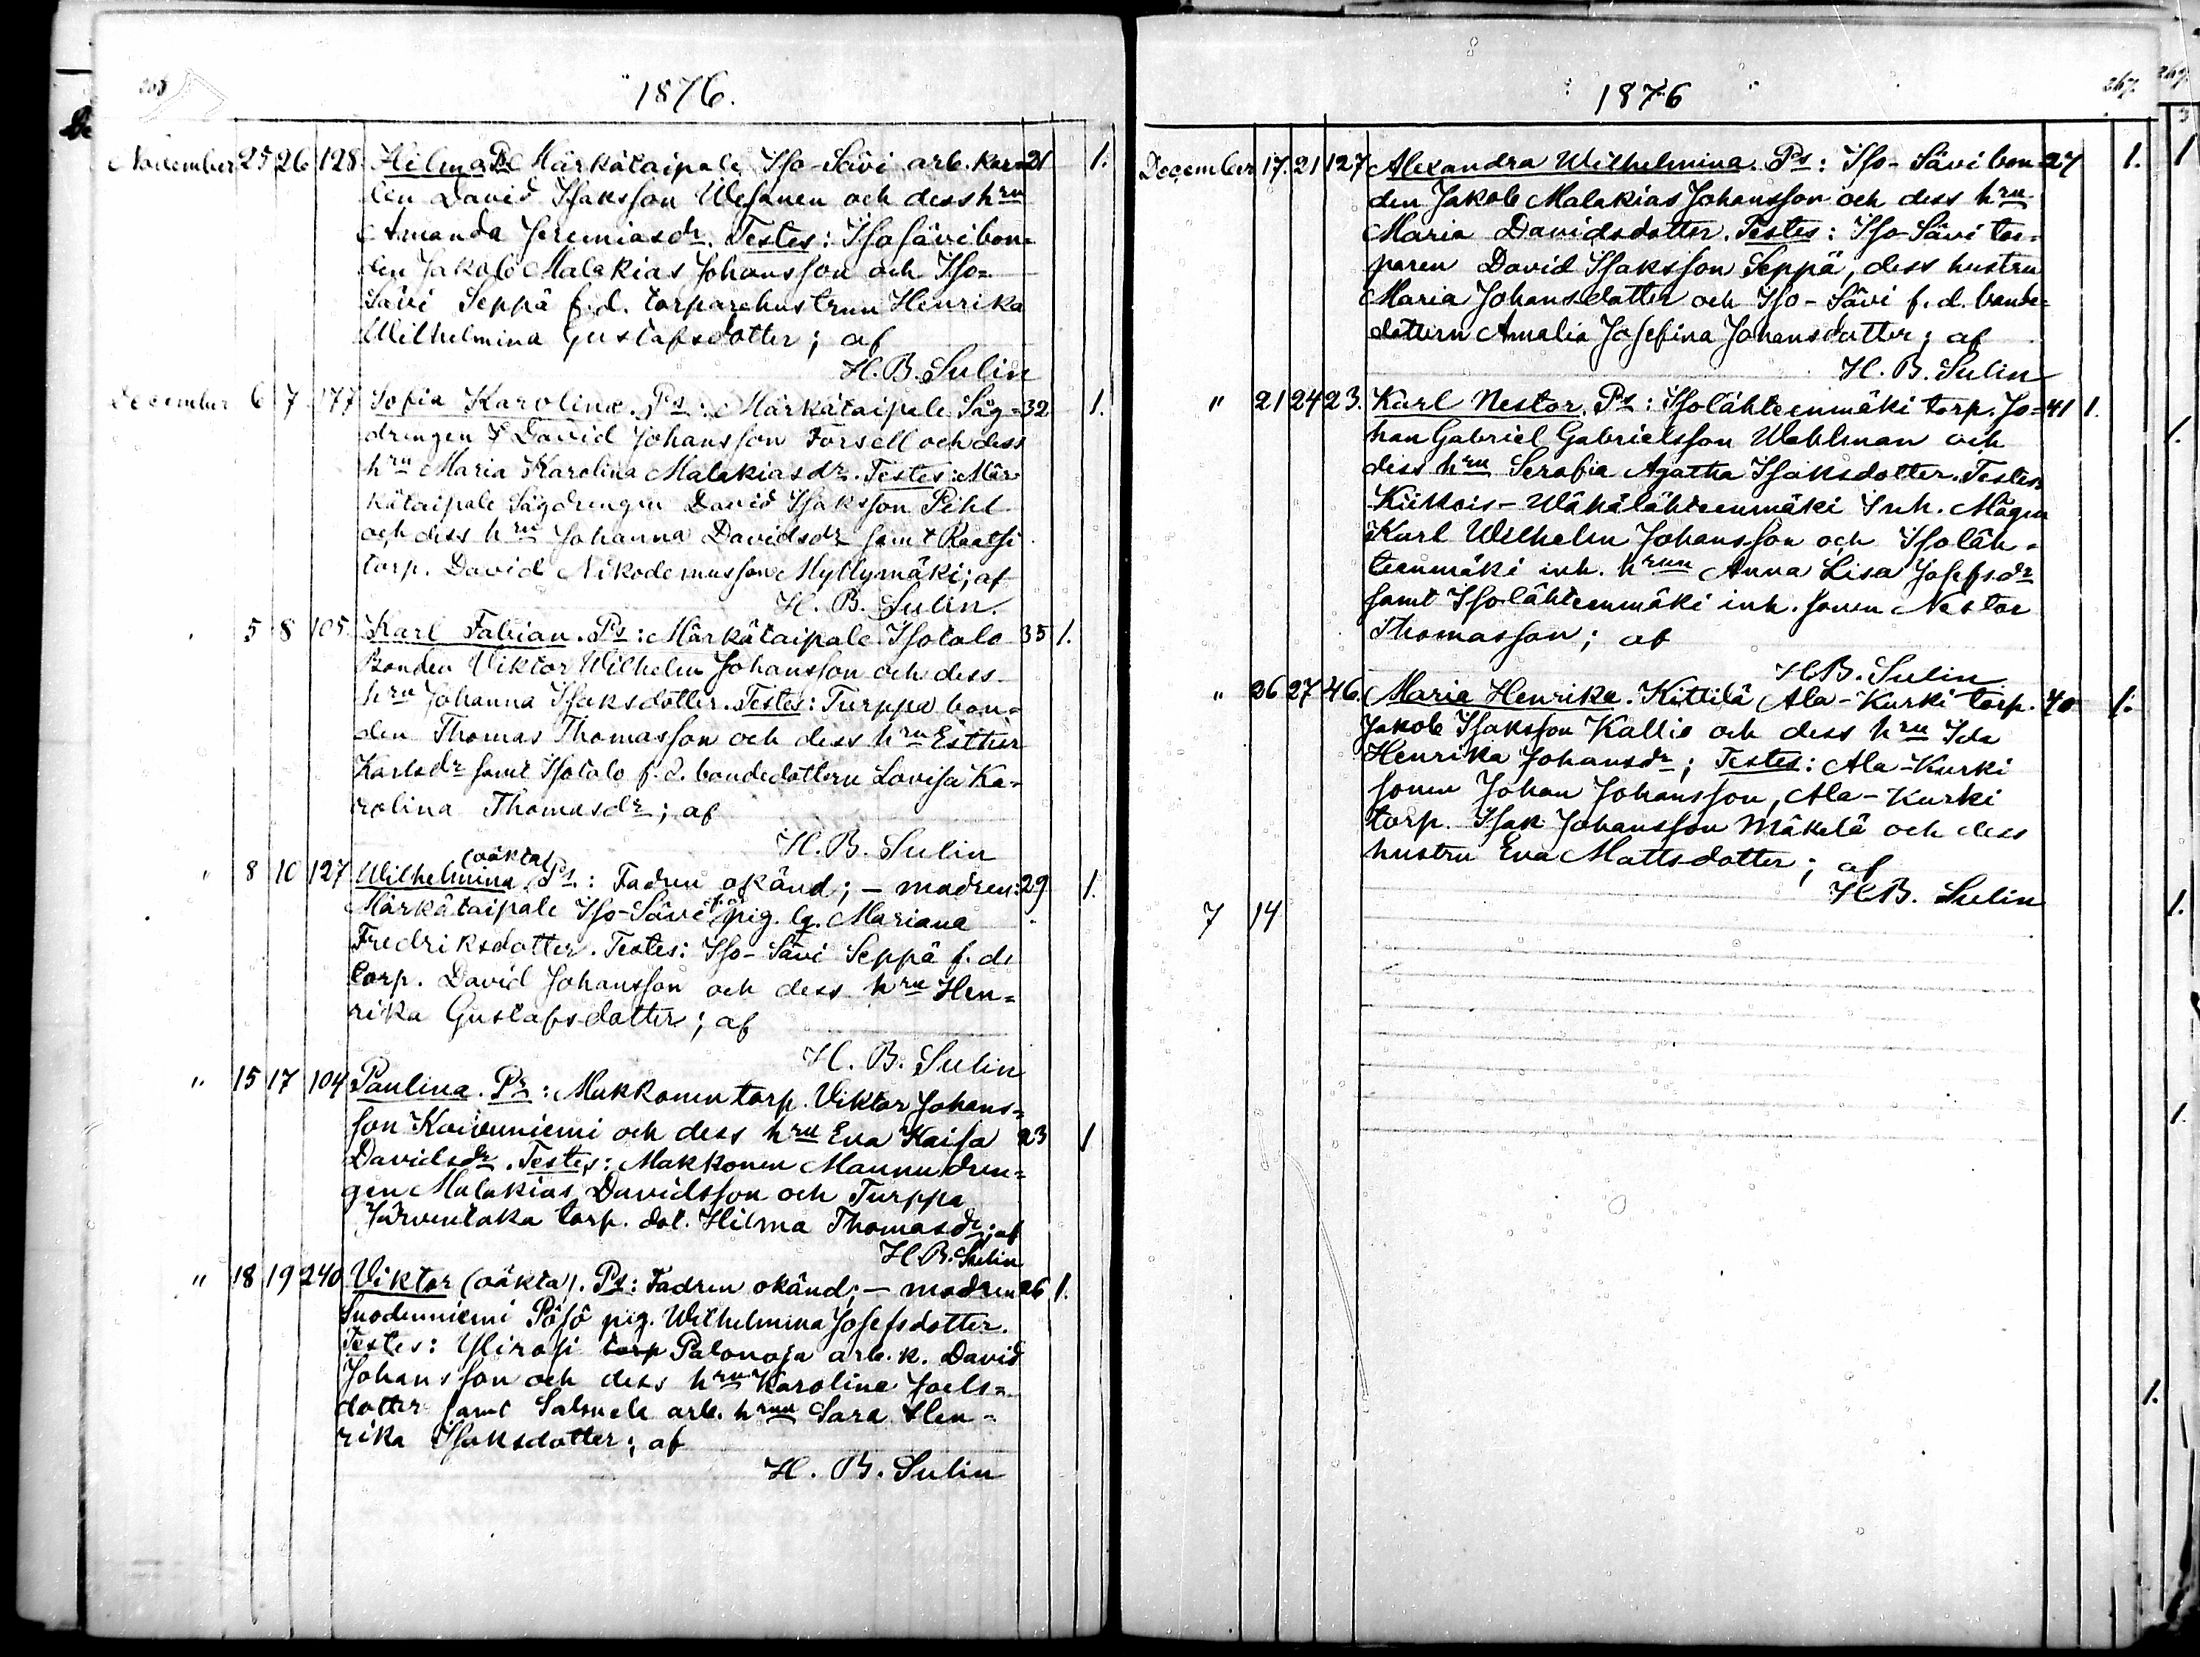 1876.
November 25 26 128 Hilma. Ps Märkätaipale Iso-Sävi arb. kar= 21 1.
len David Isaksson Wesanen och dess hru
Amanda Jeremiasdr. Testes: Isosävi bon=
den Jakob Malakias Johansson och Iso=
Sävi Seppä f.d. torparehustrun Henrika
Wilhelmina Gustafsdotter; af
H. B. Sulin
December 6 7 177 Sofia Karolina. Ps: Märkätaipale Såg= 32 1.
drengen David Johansson Forsell och dess
hru Maria Karolina Malakiasdr. Testes: Mär
kätaipale Sågdrengen David Isaksson Pihl
och dess hru Johanna Davidsdr samt Raatsi
torp. David Nikodemusson Myllymäki; af
H. B. Sulin.
5 8 105 Karl Fabian. Ps: Märkätaipale Isotalo 35 1.
Bonden Viktor Wilhelm Johansson och dess
hru Johanna Isaksdotter. Testes: Turppa bon=
den Thomas Thomasson och dess hru Esther
Karlsdr samt Isotalo f.d. bondedottern Lovisa Ka=
rolina Thomasdr; af
H. B. Sulin
(oäkta)
" 8 10 127 Wilhelmina Ps: Fadren okänd; – modren: 29 1.
Märkätaipale Iso-Sävi pig. Mariana
Fredriksdotter. Testes: Iso-Sävi Seppä f.d.
torp. David Johansson och dess hru Hen=
rika Gustafsdotter; af
H. B. Sulin
" 15 17 104 Paulina. Ps: Makkonen torp. Viktor Johans=
son Koivuniemi och dess hru Eva Kaisa 23 1
Davidsdr. Testes: Makkonen Mannu dren=
gen Malakias Davidsson och Turppa
Järventaka torp. dot. Hilma Thomasdr; af
H. B. Sulin
" 18 19 240 Viktor (oäkta). Ps: Fadren okänd; – modren 26 1.
Suodenniemi Pösö pig. Wilhelmina Josefsdotter.
Testes: Ylirosi torp Palonoja arb. k. David
Johansson och dess hru Karolina Joels=
dotter samt Salmela arb. hrun Sara Hen=
rika Isaksdotter; af
H. B. Sulin
1876 267.
December 17. 21 127 Alexandra Wilhelmina. Ps: Iso-Sävi bon= 27 1.
den Jakob Malakias Johansson och dess hru
Maria Davidsdotter. Testes: Iso-Sävi tor=
paren David Isaksson Seppä, dess hustru
Maria Johansdotter och Iso-Sävi f.d. bonde=
dottern Amalia Josefina Johansdotter; af
H. B. Sulin
" 21 24 23. Karl Nestor. Ps: Isolähteenmäki torp. Jo= 41 1.
han Gabriel Gabrielsson Wahlman och
dess hru Serafia Agatha Isaksdotter. Testes
Kiikois-Wähälähteenmäki Inh. Mågen
Karl Wilhelm Johansson och Isoläh=
teenmäki inh. hrun Anna Lisa Josefsdr
samt Isolähteenmäki inh. sonen Nestor
Thomasson; af
H. B. Sulin
" 26 27 46. Maria Henrika. Kittilä Ala-Kurki torp. 40 1.
Jakob Isaksson Kallio och dess hru Ida
Henrika Johansdr; Testes: Ala-Kurki
sonen Johan Johansson, Ala-Kurki
torp. Isak Johansson Mäkelä och dess
hustru Eva Mattsdotter; af
H. B. Sulin
7 14